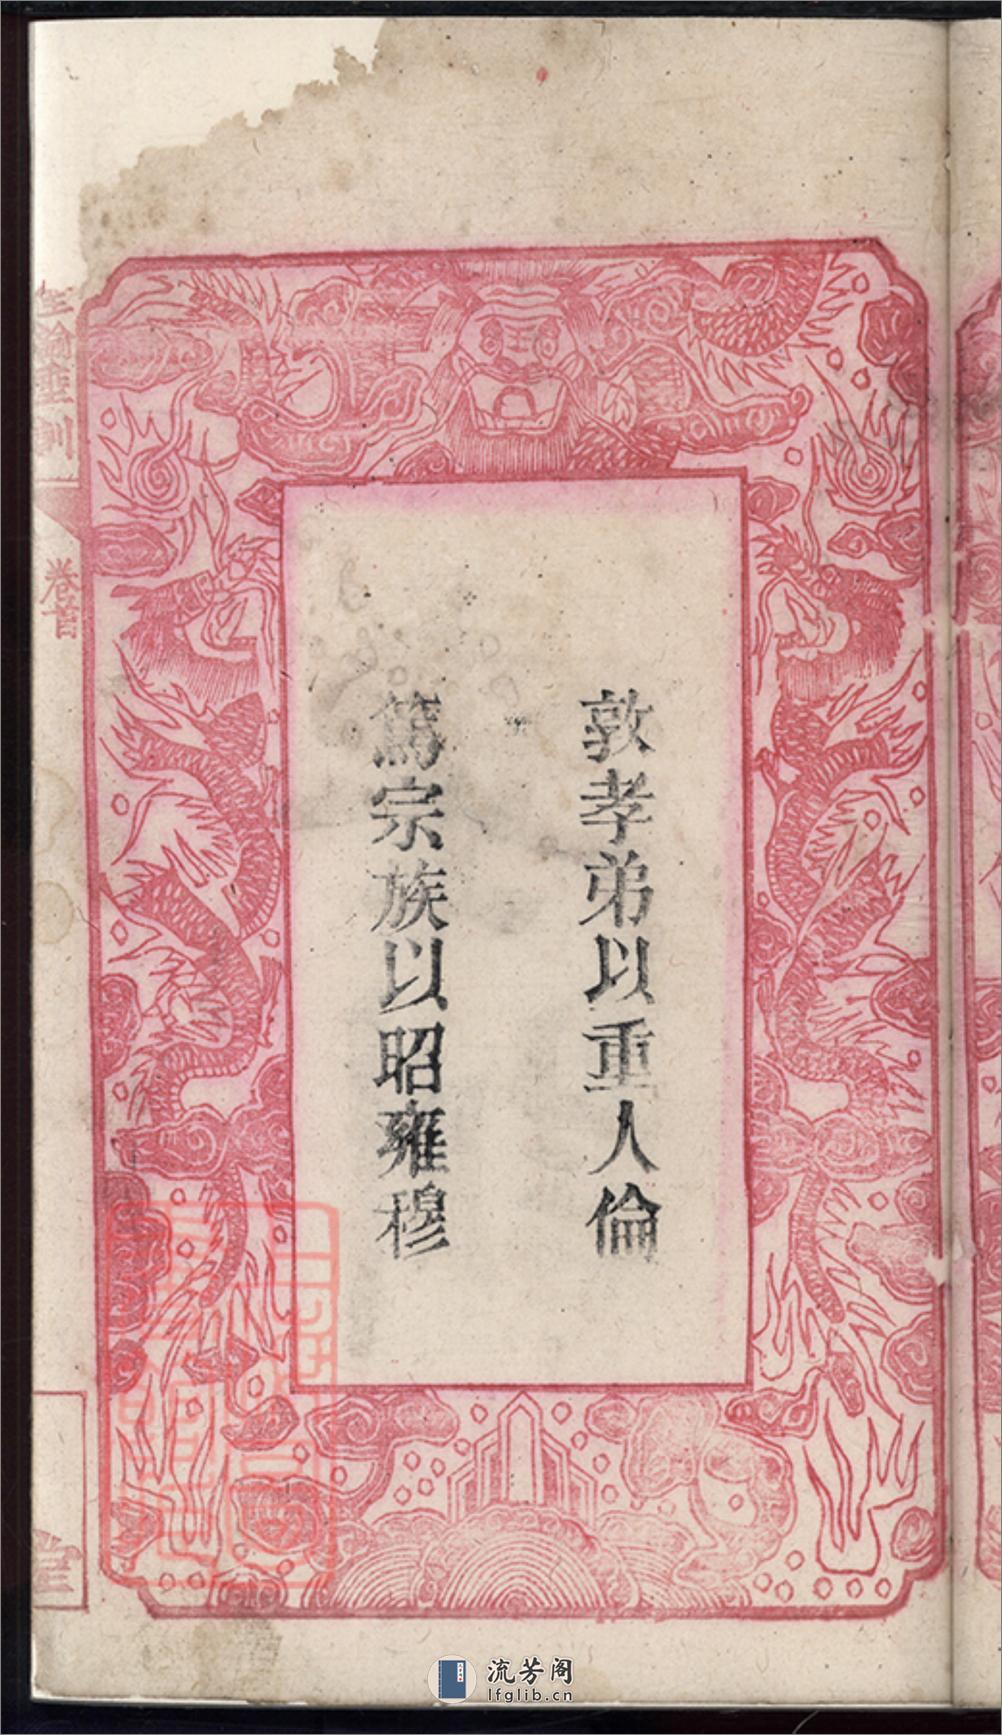 敦孝弟以重人倫
篤宗族以昭雍穆
聖諭聖訓
卷首
流芳阁
lfglib.cn